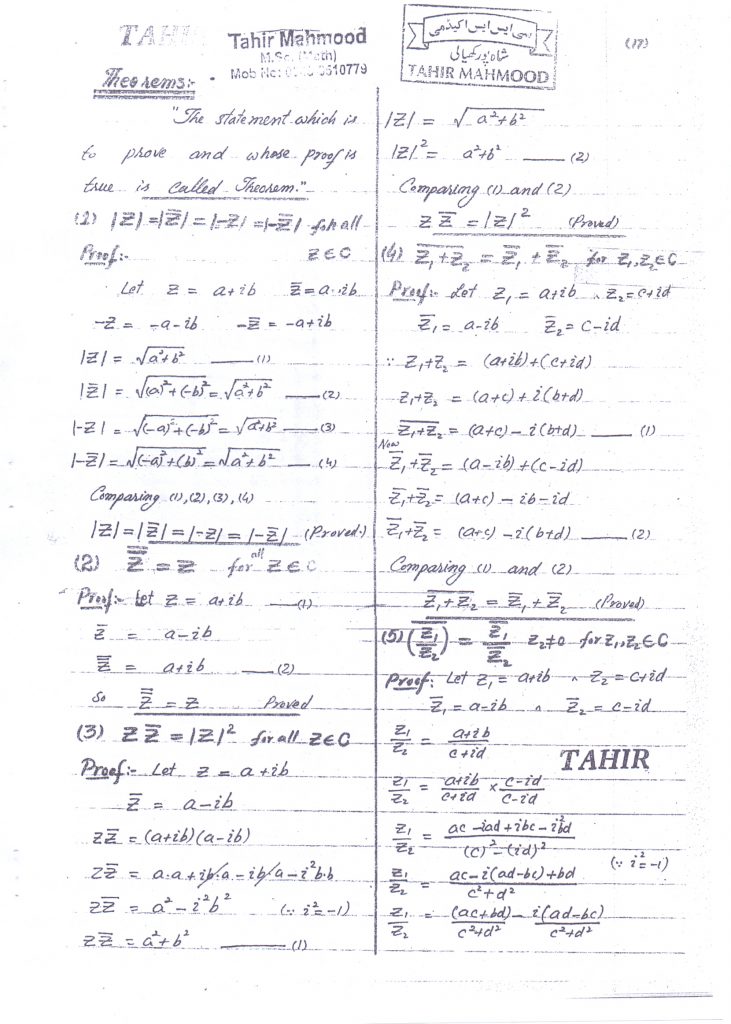 TAHIR
Tahir Mahmood
M.Sc. (Math)
Mob No: 3510779
شاہ پور کھیالی
TAHIR MAHMOOD
(17)
Theorems:-
"The statement which is
to prove and whose proof is
true is called Theorem."
(1) |Z| = |Z̅| = |-Z| = |-Z̅| for all
Proof:- Z∈C
Let Z = a+ib Z̅ = a-ib
-Z = -a-ib -Z̅ = -a+ib
|Z| = √(a²+b²) —— (1)
|Z̅| = √((a)²+(-b)²) = √(a²+b²) —— (2)
|-Z| = √((-a)²+(-b)²) = √(a²+b²) —— (3)
|-Z̅| = √((-a)²+(b)²) = √(a²+b²) —— (4)
Comparing (1), (2), (3), (4)
|Z| = |Z̅| = |-Z| = |-Z̅| (Proved.)
(2) Z̿ = Z for all Z∈C
Proof:- Let Z = a+ib —— (1)
Z̅ = a-ib
Z̿ = a+ib —— (2)
So Z̿ = Z Proved
(3) Z Z̅ = |Z|² for all Z∈C
Proof:- Let Z = a+ib
Z̅ = a-ib
ZZ̅ = (a+ib)(a-ib)
ZZ̅ = a.a+ib.a-ib.a-i²b.b
ZZ̅ = a²-i²b² (∵ i²=-1)
ZZ̅ = a²+b² —— (1)
|Z| = √(a²+b²)
|Z|² = a²+b² —— (2)
Comparing (1) and (2)
Z Z̅ = |Z|² (Proved)
(4) \overline{Z₁+Z₂} = Z̅₁ + Z̅₂ for Z₁,Z₂∈C
Proof:- Let Z₁ = a+ib ∧ Z₂ = c+id
Z̅₁ = a-ib Z̅₂ = c-id
∵ Z₁+Z₂ = (a+ib)+(c+id)
Z₁+Z₂ = (a+c)+i(b+d)
\overline{Z₁+Z₂} = (a+c)-i(b+d) —— (1)
Now
Z̅₁+Z̅₂ = (a-ib)+(c-id)
Z̅₁+Z̅₂ = (a+c)-ib-id
Z̅₁+Z̅₂ = (a+c)-i(b+d) —— (2)
Comparing (1) and (2)
\overline{Z₁+Z₂} = Z̅₁+Z̅₂ (Proved)
(5) \overline{(Z₁/Z₂)} = Z̅₁/Z̅₂ Z₂≠0 for Z₁,Z₂∈C
Proof: Let Z₁ = a+ib ∧ Z₂ = c+id
Z̅₁ = a-ib ∧ Z̅₂ = c-id
Z₁/Z₂ = (a+ib)/(c+id)
TAHIR
Z₁/Z₂ = (a+ib)/(c+id) × (c-id)/(c-id)
Z₁/Z₂ = (ac-iad+ibc-i²bd)/((c)²-(id)²)
(∵ i²=-1)
Z₁/Z₂ = (ac-i(ad-bc)+bd)/(c²+d²)
Z₁/Z₂ = (ac+bd)/(c²+d²) - i(ad-bc)/(c²+d²)